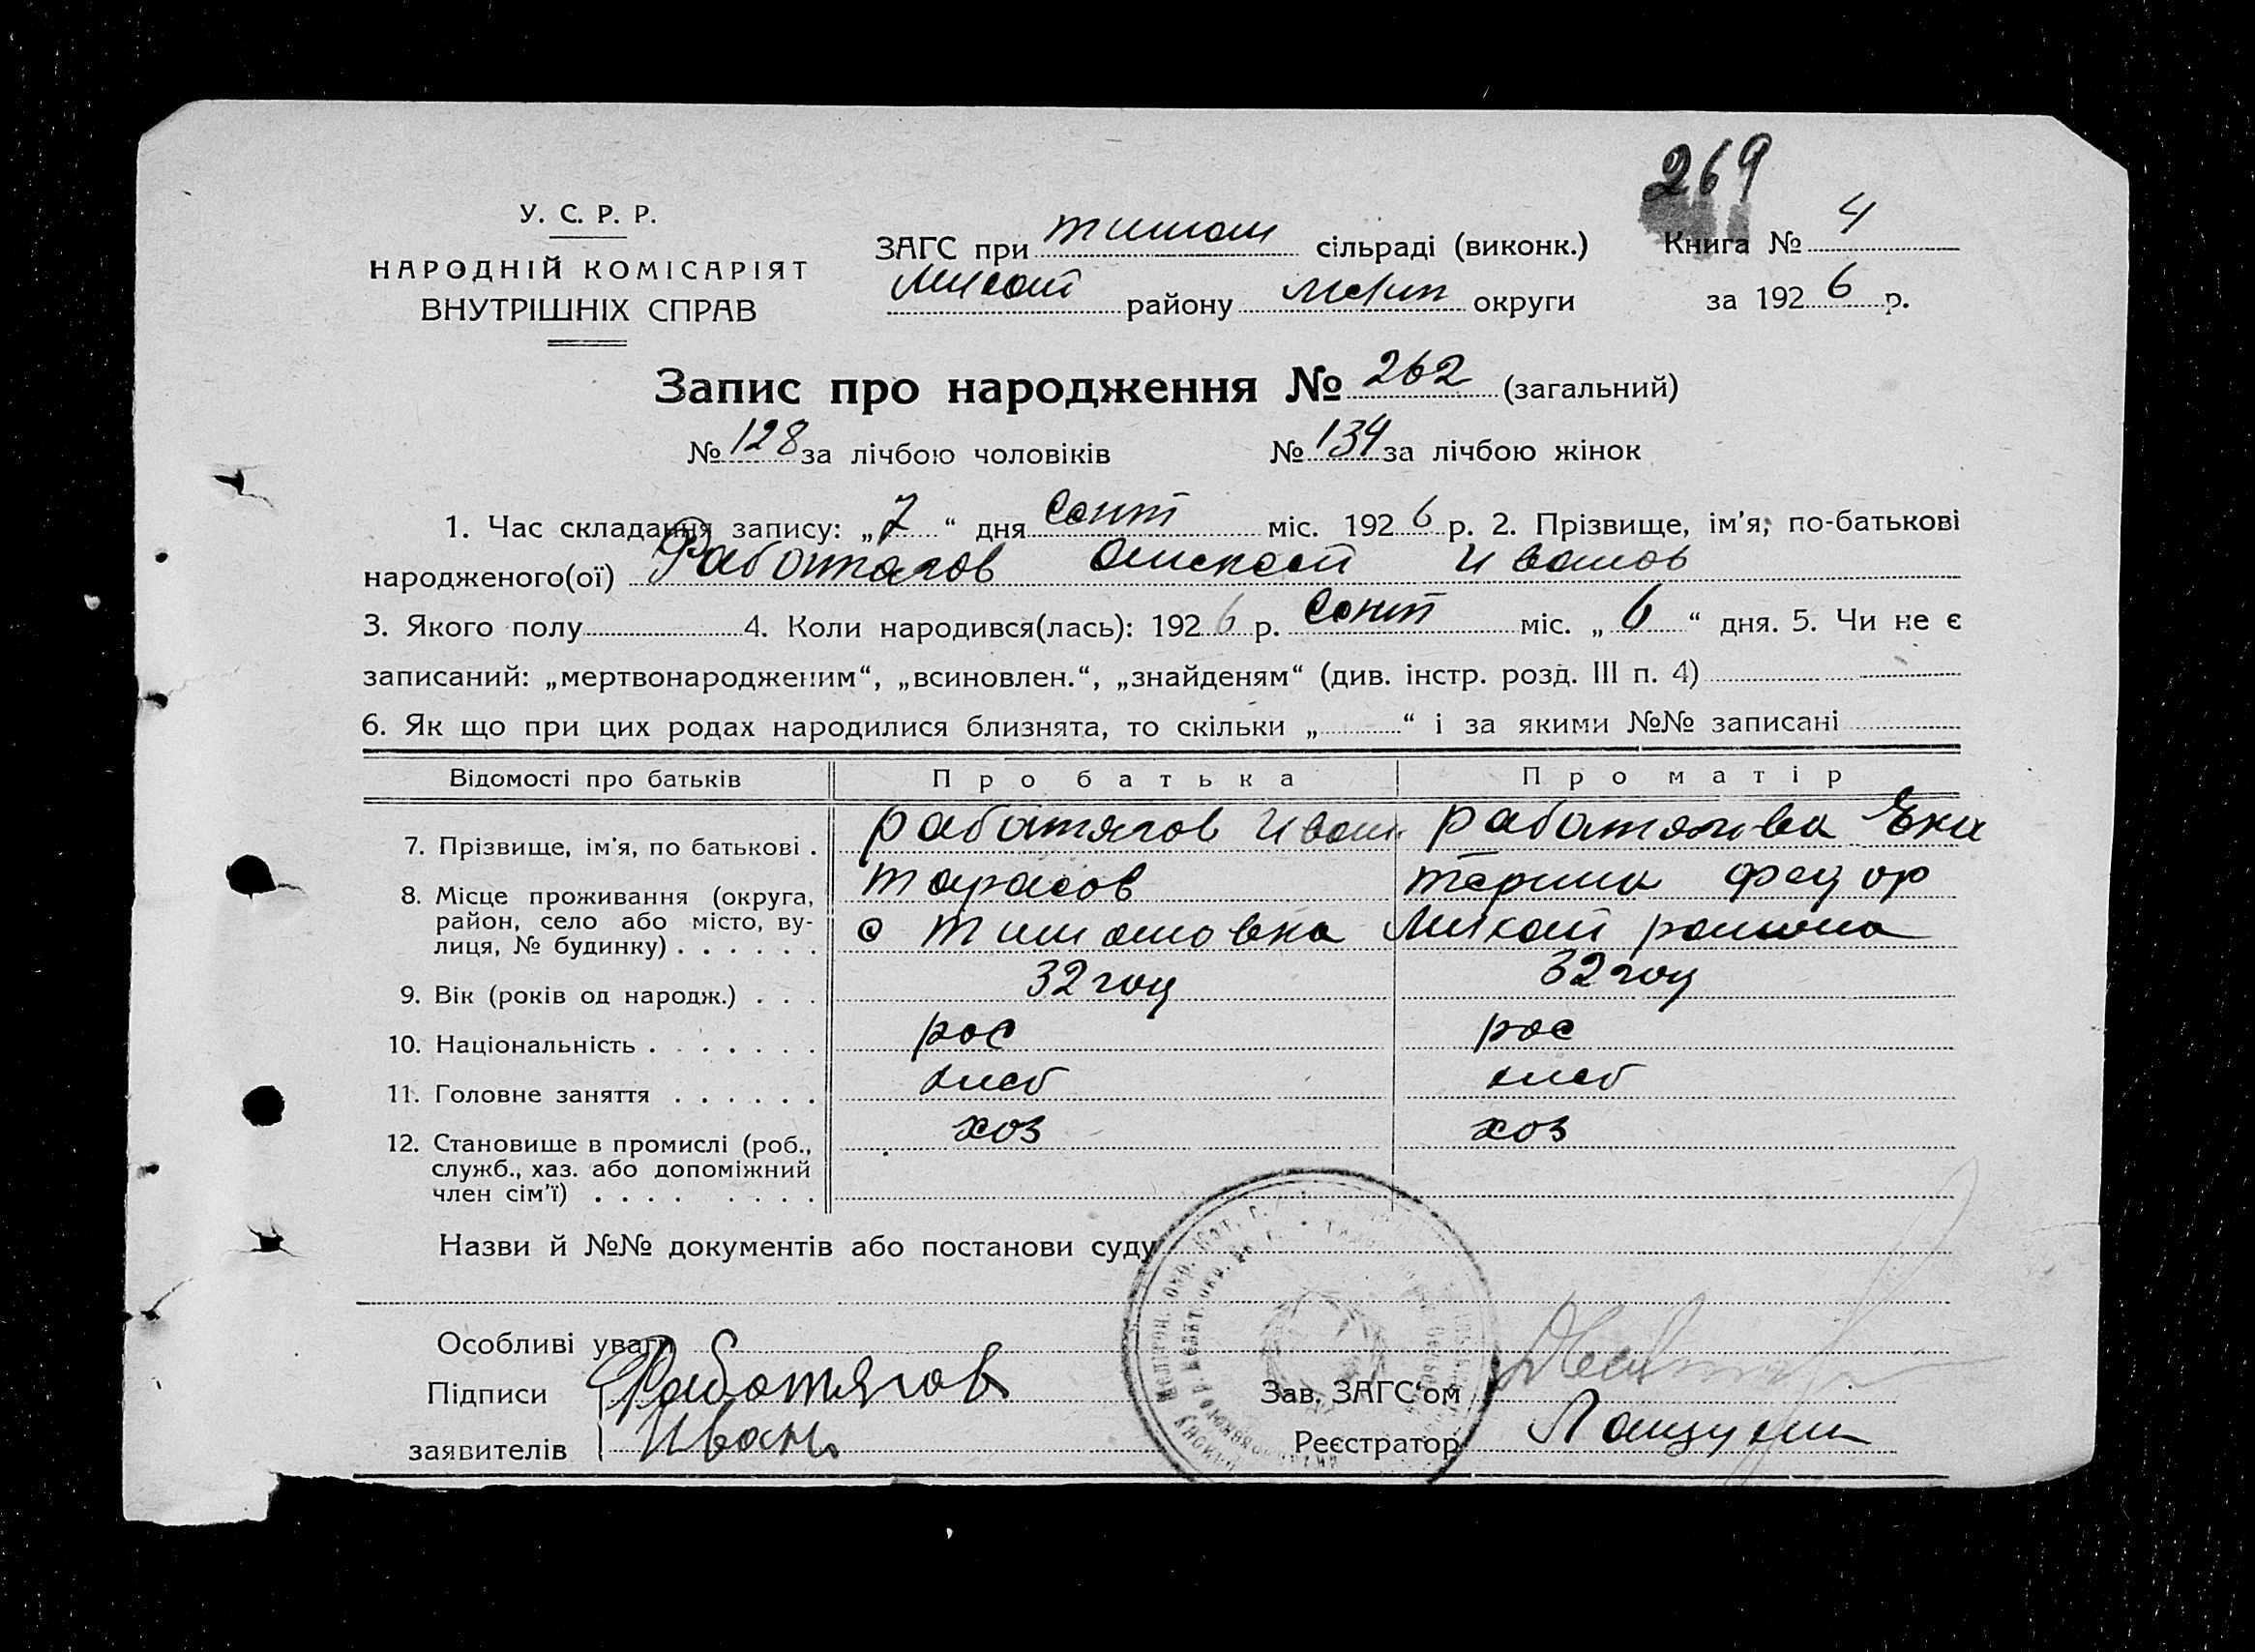 269
У. С. Р. Р.
НАРОДНІЙ КОМІСАРІЯТ
ВНУТРІШНІХ СПРАВ
ЗАГС при тимош сільраді (виконк.) Книга № 4
району округи за 1926 р.
Запис про народження № 262 (загальний)
№ 128 за лічбою чоловіків № 134 за лічбою жінок
1. Час складання запису: „7“ дня Сент міс. 1926 р. 2. Прізвище, ім’я, по-батькові
народженого(ої) Работягов Иванов
3. Якого полу 4. Коли народився(лась): 1926 р. Сент міс. „6“ дня. 5. Чи не є
записаний: „мертвонародженим“, „всиновлен.“, „знайденям“ (див. інстр. розд. III п. 4)
6. Як що при цих родах народилися близнята, то скільки „ “ і за якими №№ записані
Відомості про батьків Про батька Про матір
7. Прізвище, ім’я, по батькові . работягов Иван работягова Ека
8. Місце проживання (округа, тарасов терина федор
район, село або місто, ву-
лиця, № будинку) . . . . . . с Тимошовка района
9. Вік (років од народж.) . . . 32 год 32 год
10. Національність . . . . . . . рос рос
11. Головне заняття . . . . . . хлеб хлеб
12. Становище в промислі (роб., хоз хоз
служб., хаз. або допоміжний
член сім’ї) . . . . . . . .
Назви й №№ документів або постанови суду
Особливі уваги
Підписи Работягов Зав. ЗАГС‘ом
заявителів Иванъ Реєстратор